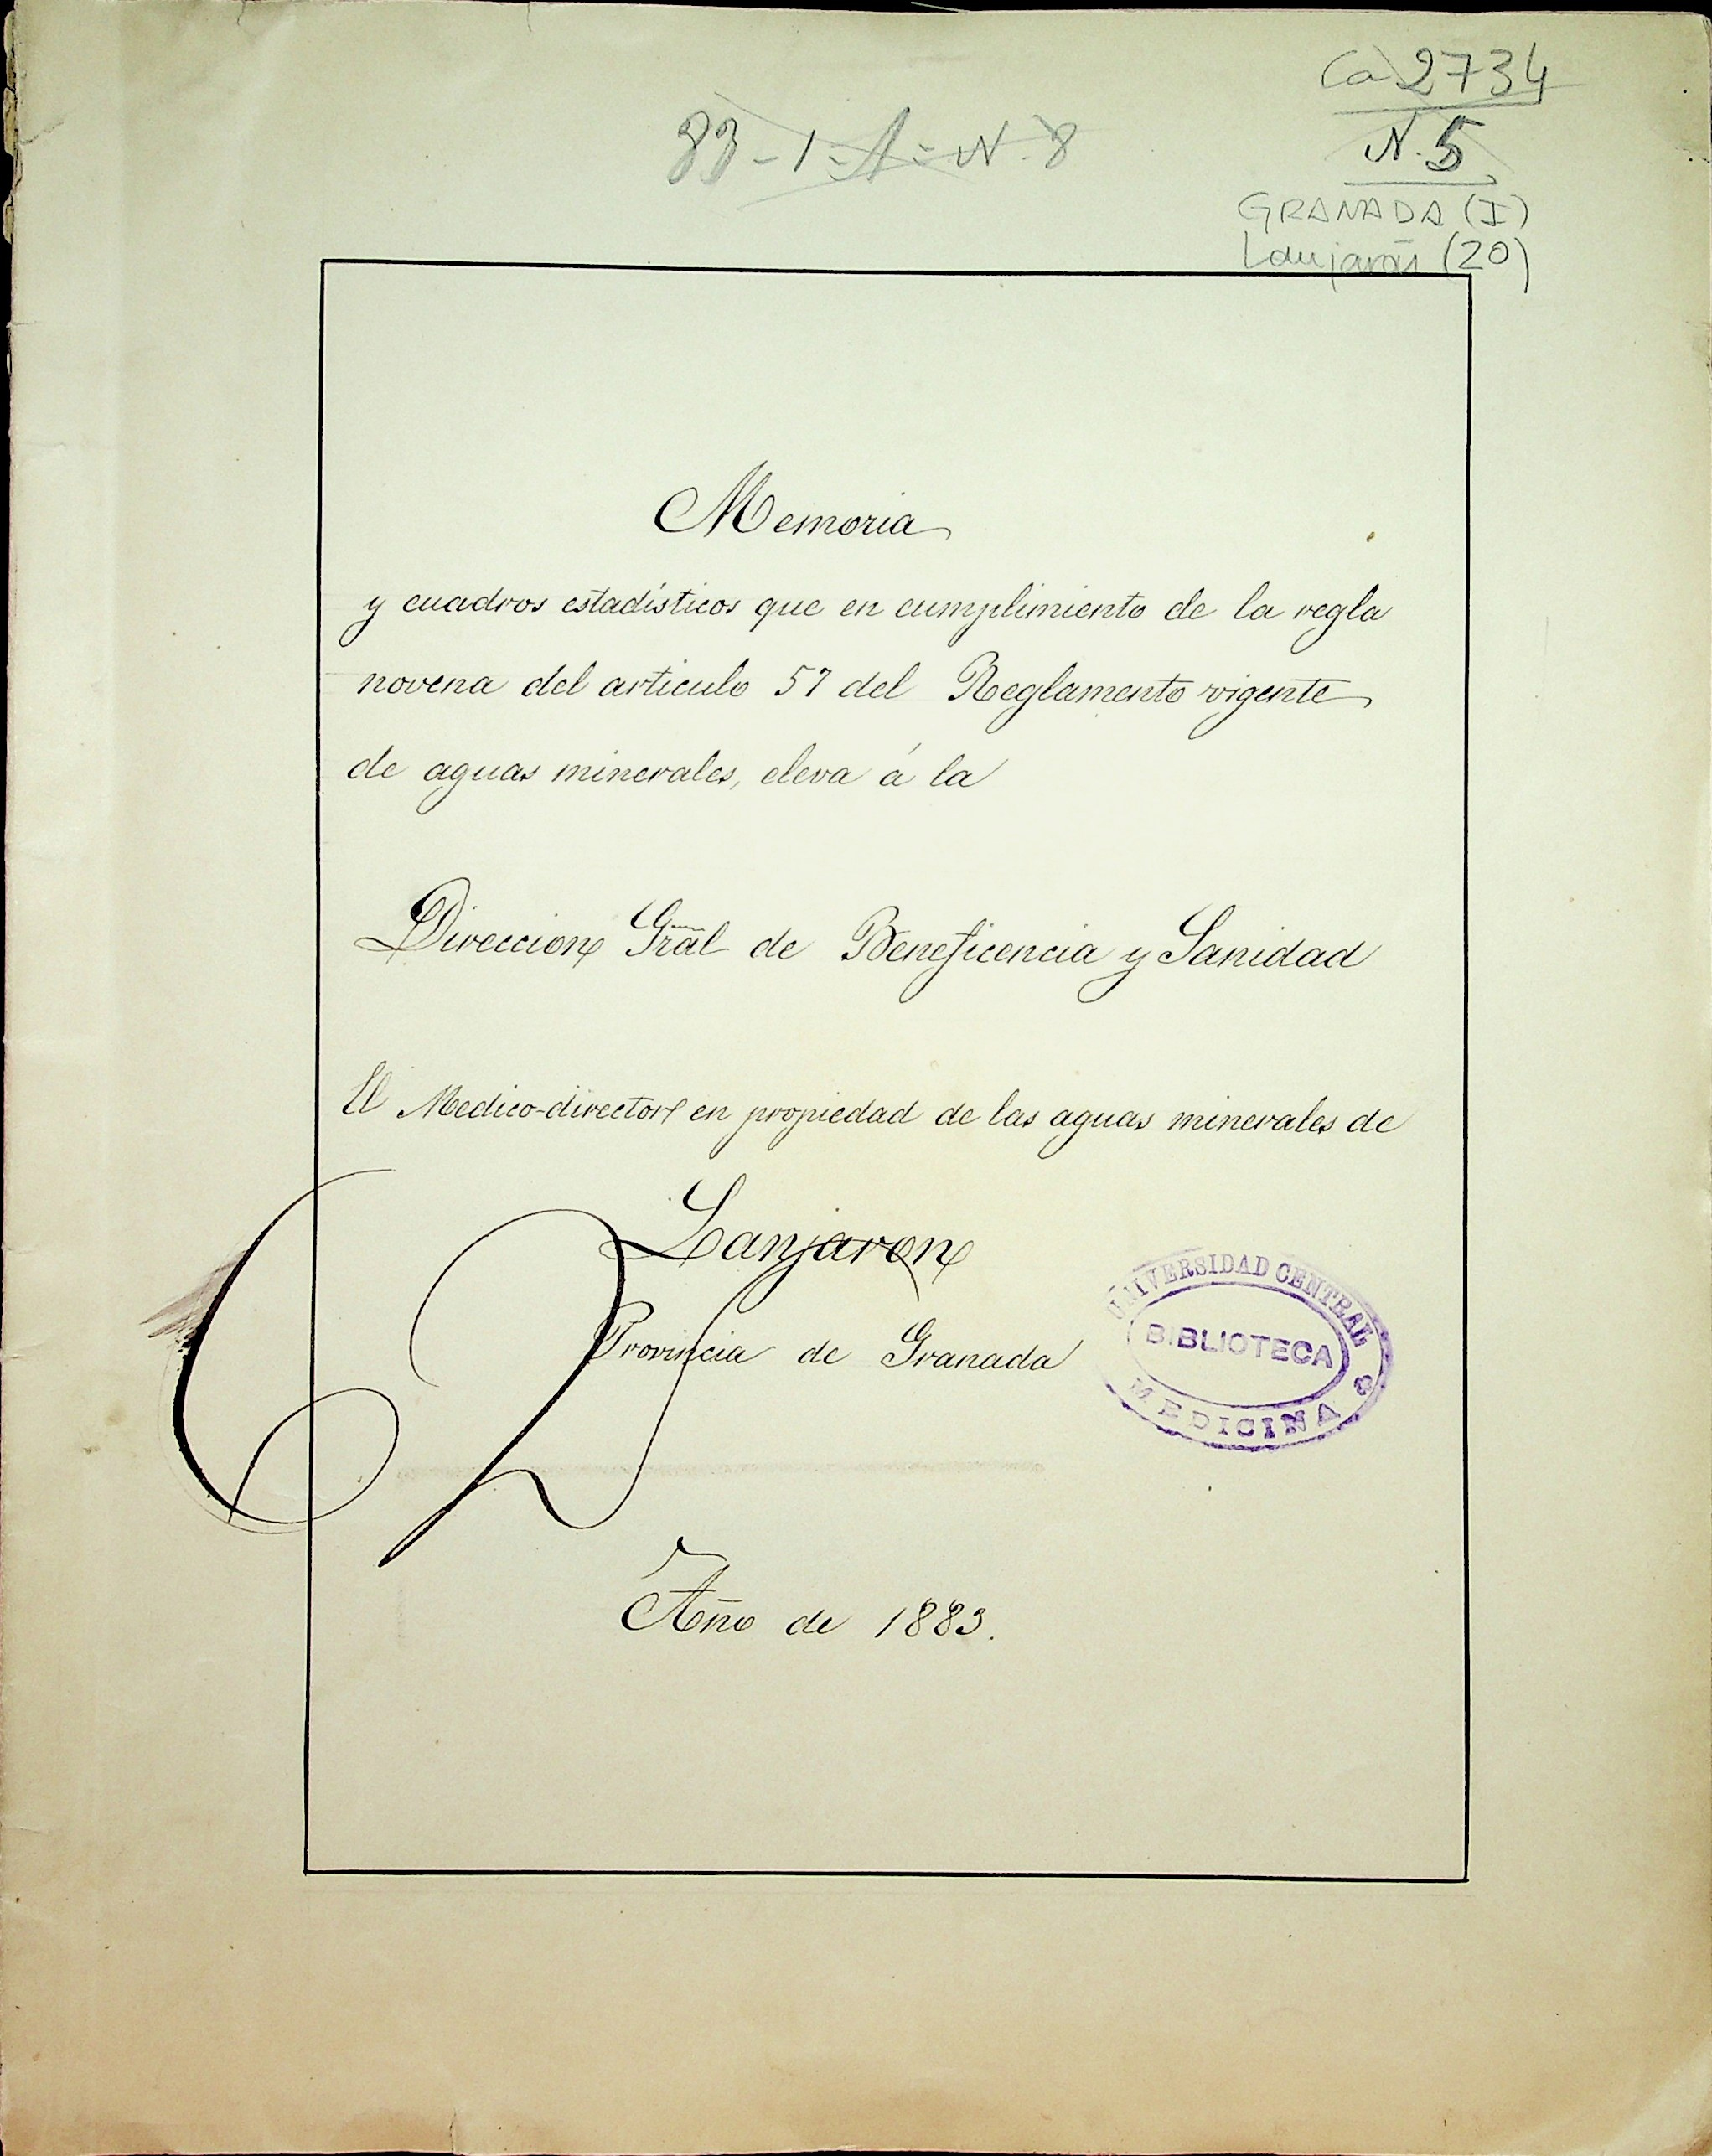 Ca 2734
83-1-A-N.8
N.5
GRANADA (I)
Lanjarón (20)
Memoria
y cuadros estadísticos que en cumplimiento de la regla
novena del articulo 57 del Reglamento vigente
de aguas minerales, eleva á la
Direccion Gral de Beneficencia y Sanidad
El Medico-director en propiedad de las aguas minerales de
Lanjaron
Provincia de Granada
UNIVERSIDAD CENTRAL
BIBLIOTECA
MEDICINA
Año de 1883.